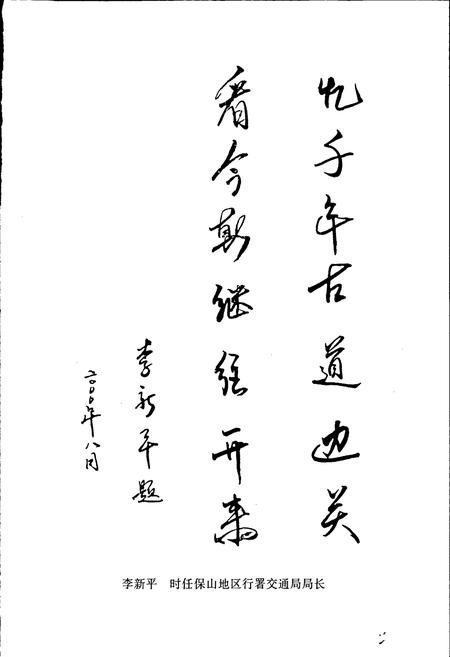 忆千年古道边关
看今朝继往开来
李新平题
二〇〇〇年八月
李新平 时任保山地区行署交通局局长